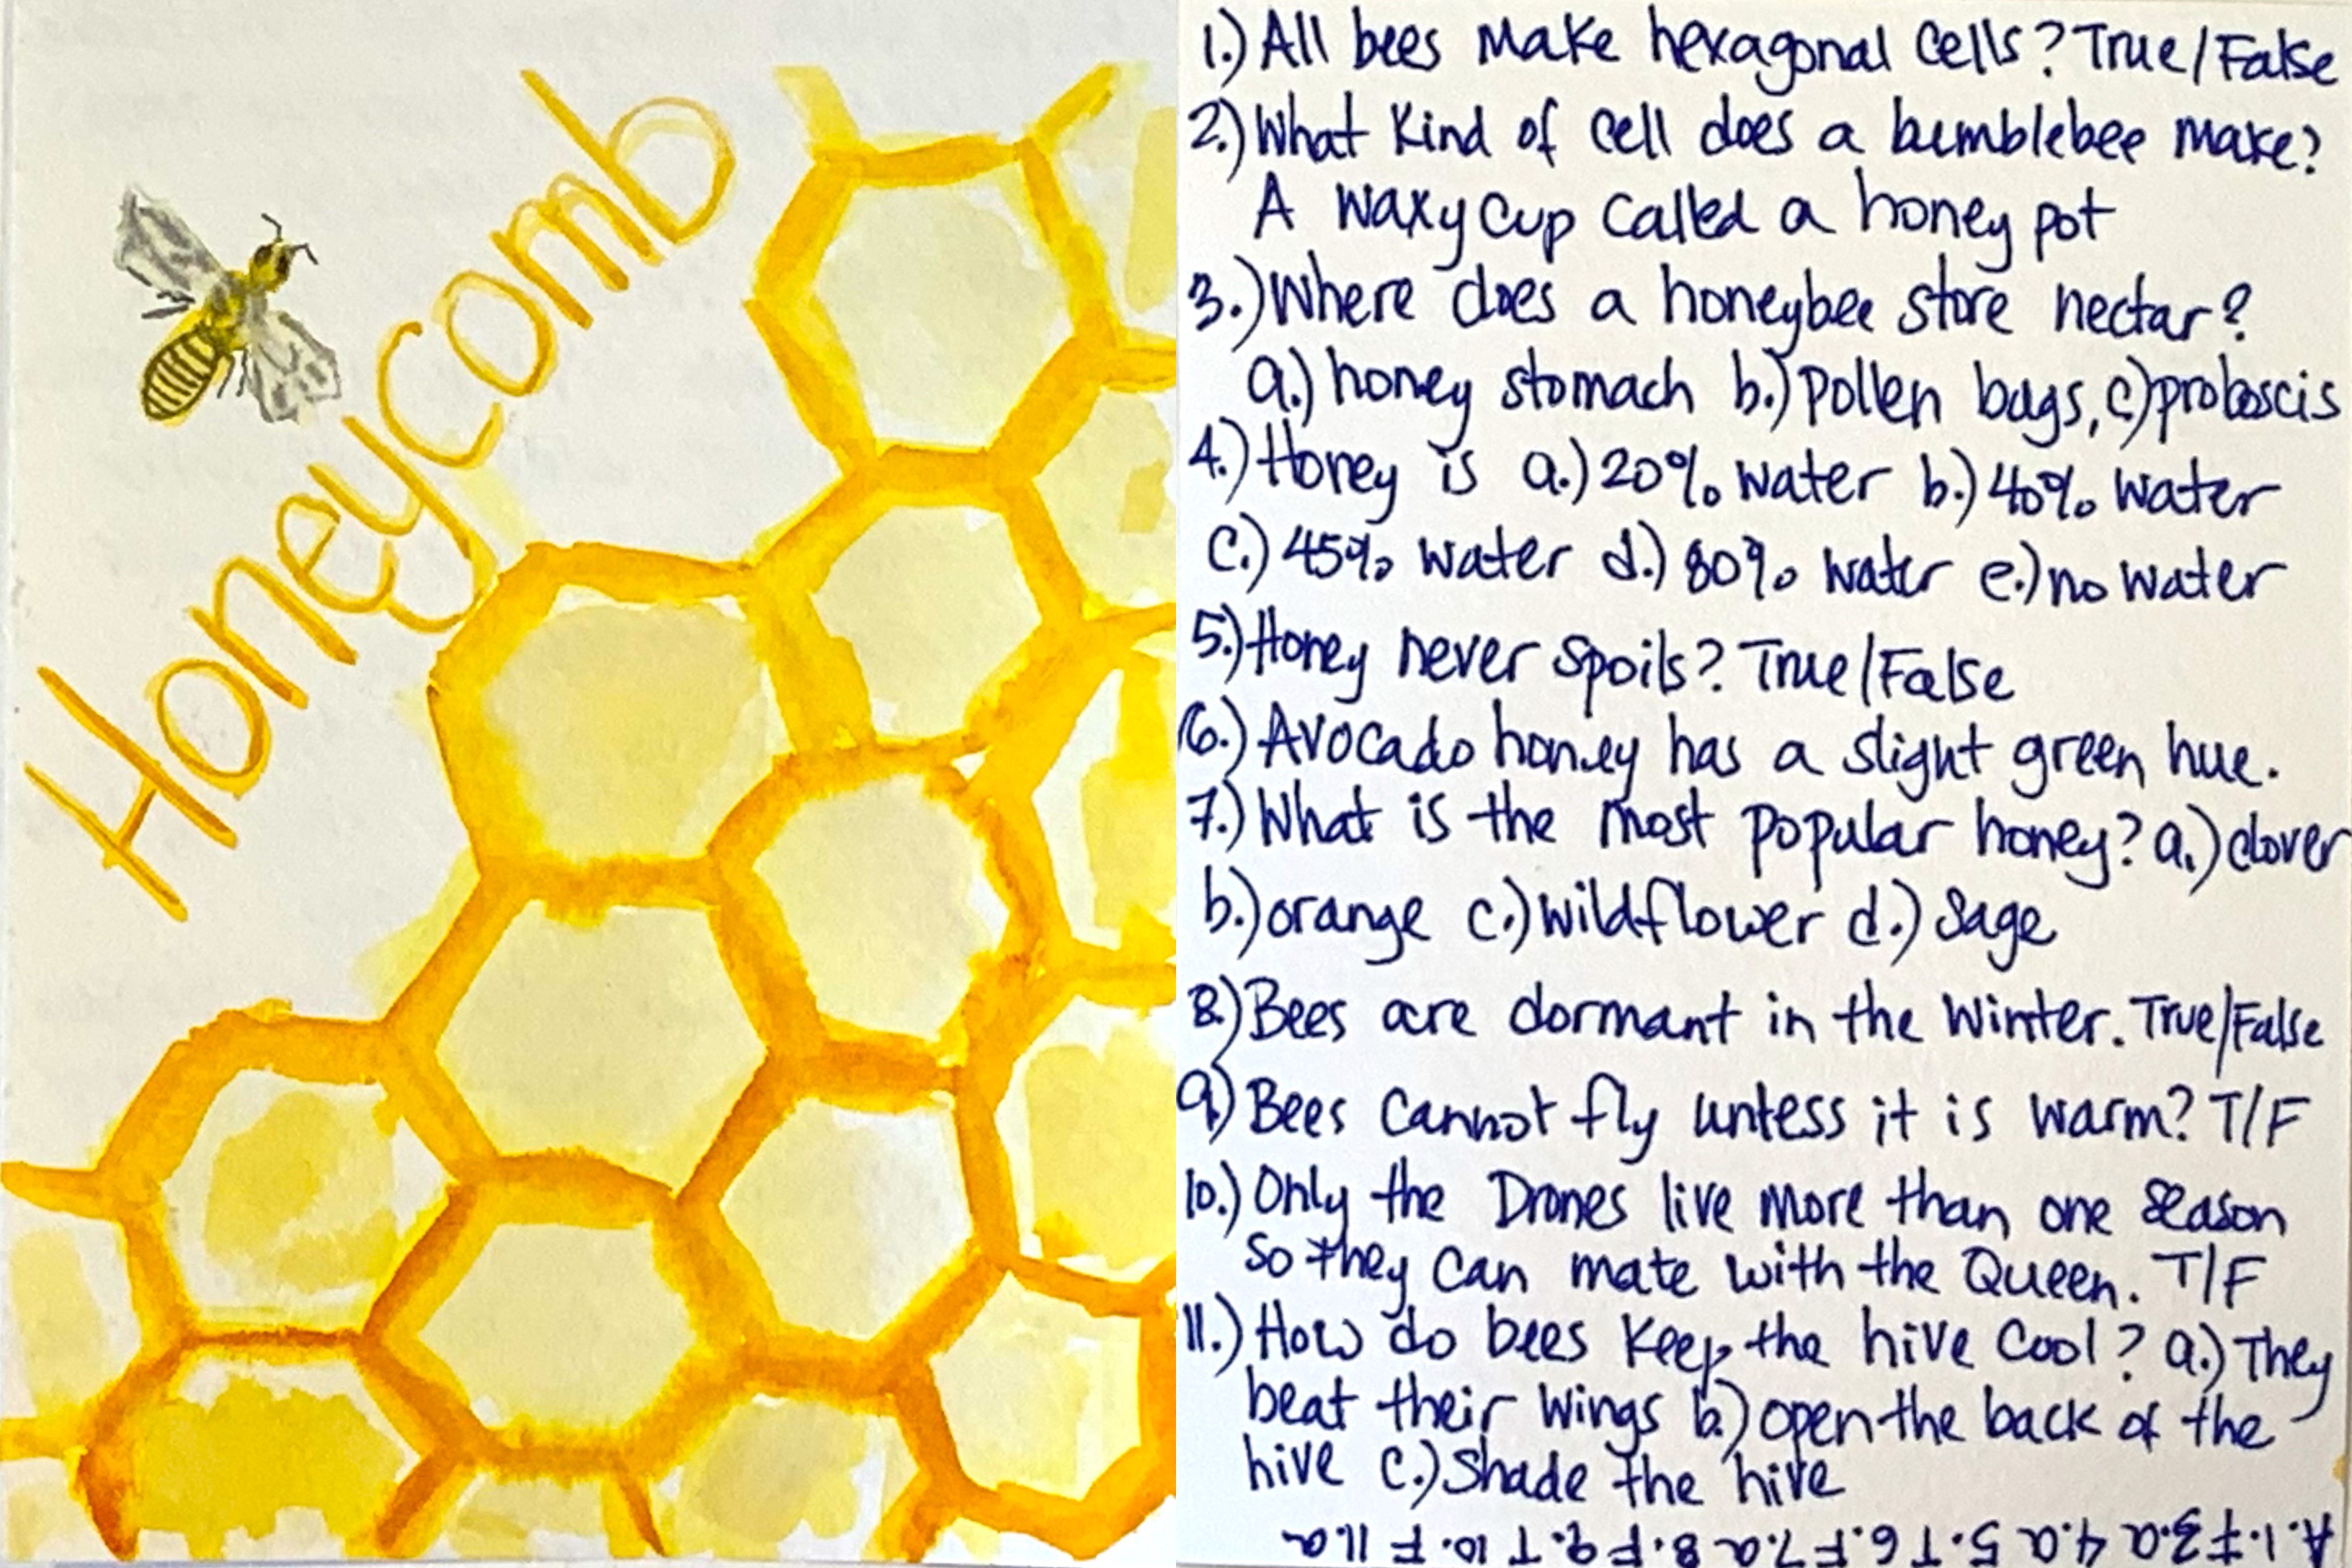 Honeycomb
1.) All bees make hexagonal cells? True/False
2.) What kind of cell does a bumblebee make?
A waxy cup called a honey pot
3.) Where does a honeybee store nectar?
a.) honey stomach b.) pollen bags, c) proboscis
4.) Honey is a.) 20% water b.) 40% water
c.) 45% water d.) 80% water e.) no water
5.) Honey never spoils? True/False
6.) Avocado honey has a slight green hue.
7.) What is the most popular honey? a.) clover
b.) orange c.) wildflower d.) sage
8.) Bees are dormant in the Winter. True/False
9.) Bees cannot fly unless it is warm? T/F
10.) Only the Drones live more than one season
so they can mate with the Queen. T/F
11.) How do bees keep the hive cool? a.) They
beat their wings b.) open the back of the
hive c.) Shade the hive
A. 1. F 3. a. 4. a 5. T 6. F 7. a 8. F 9. T 10. F 11. a